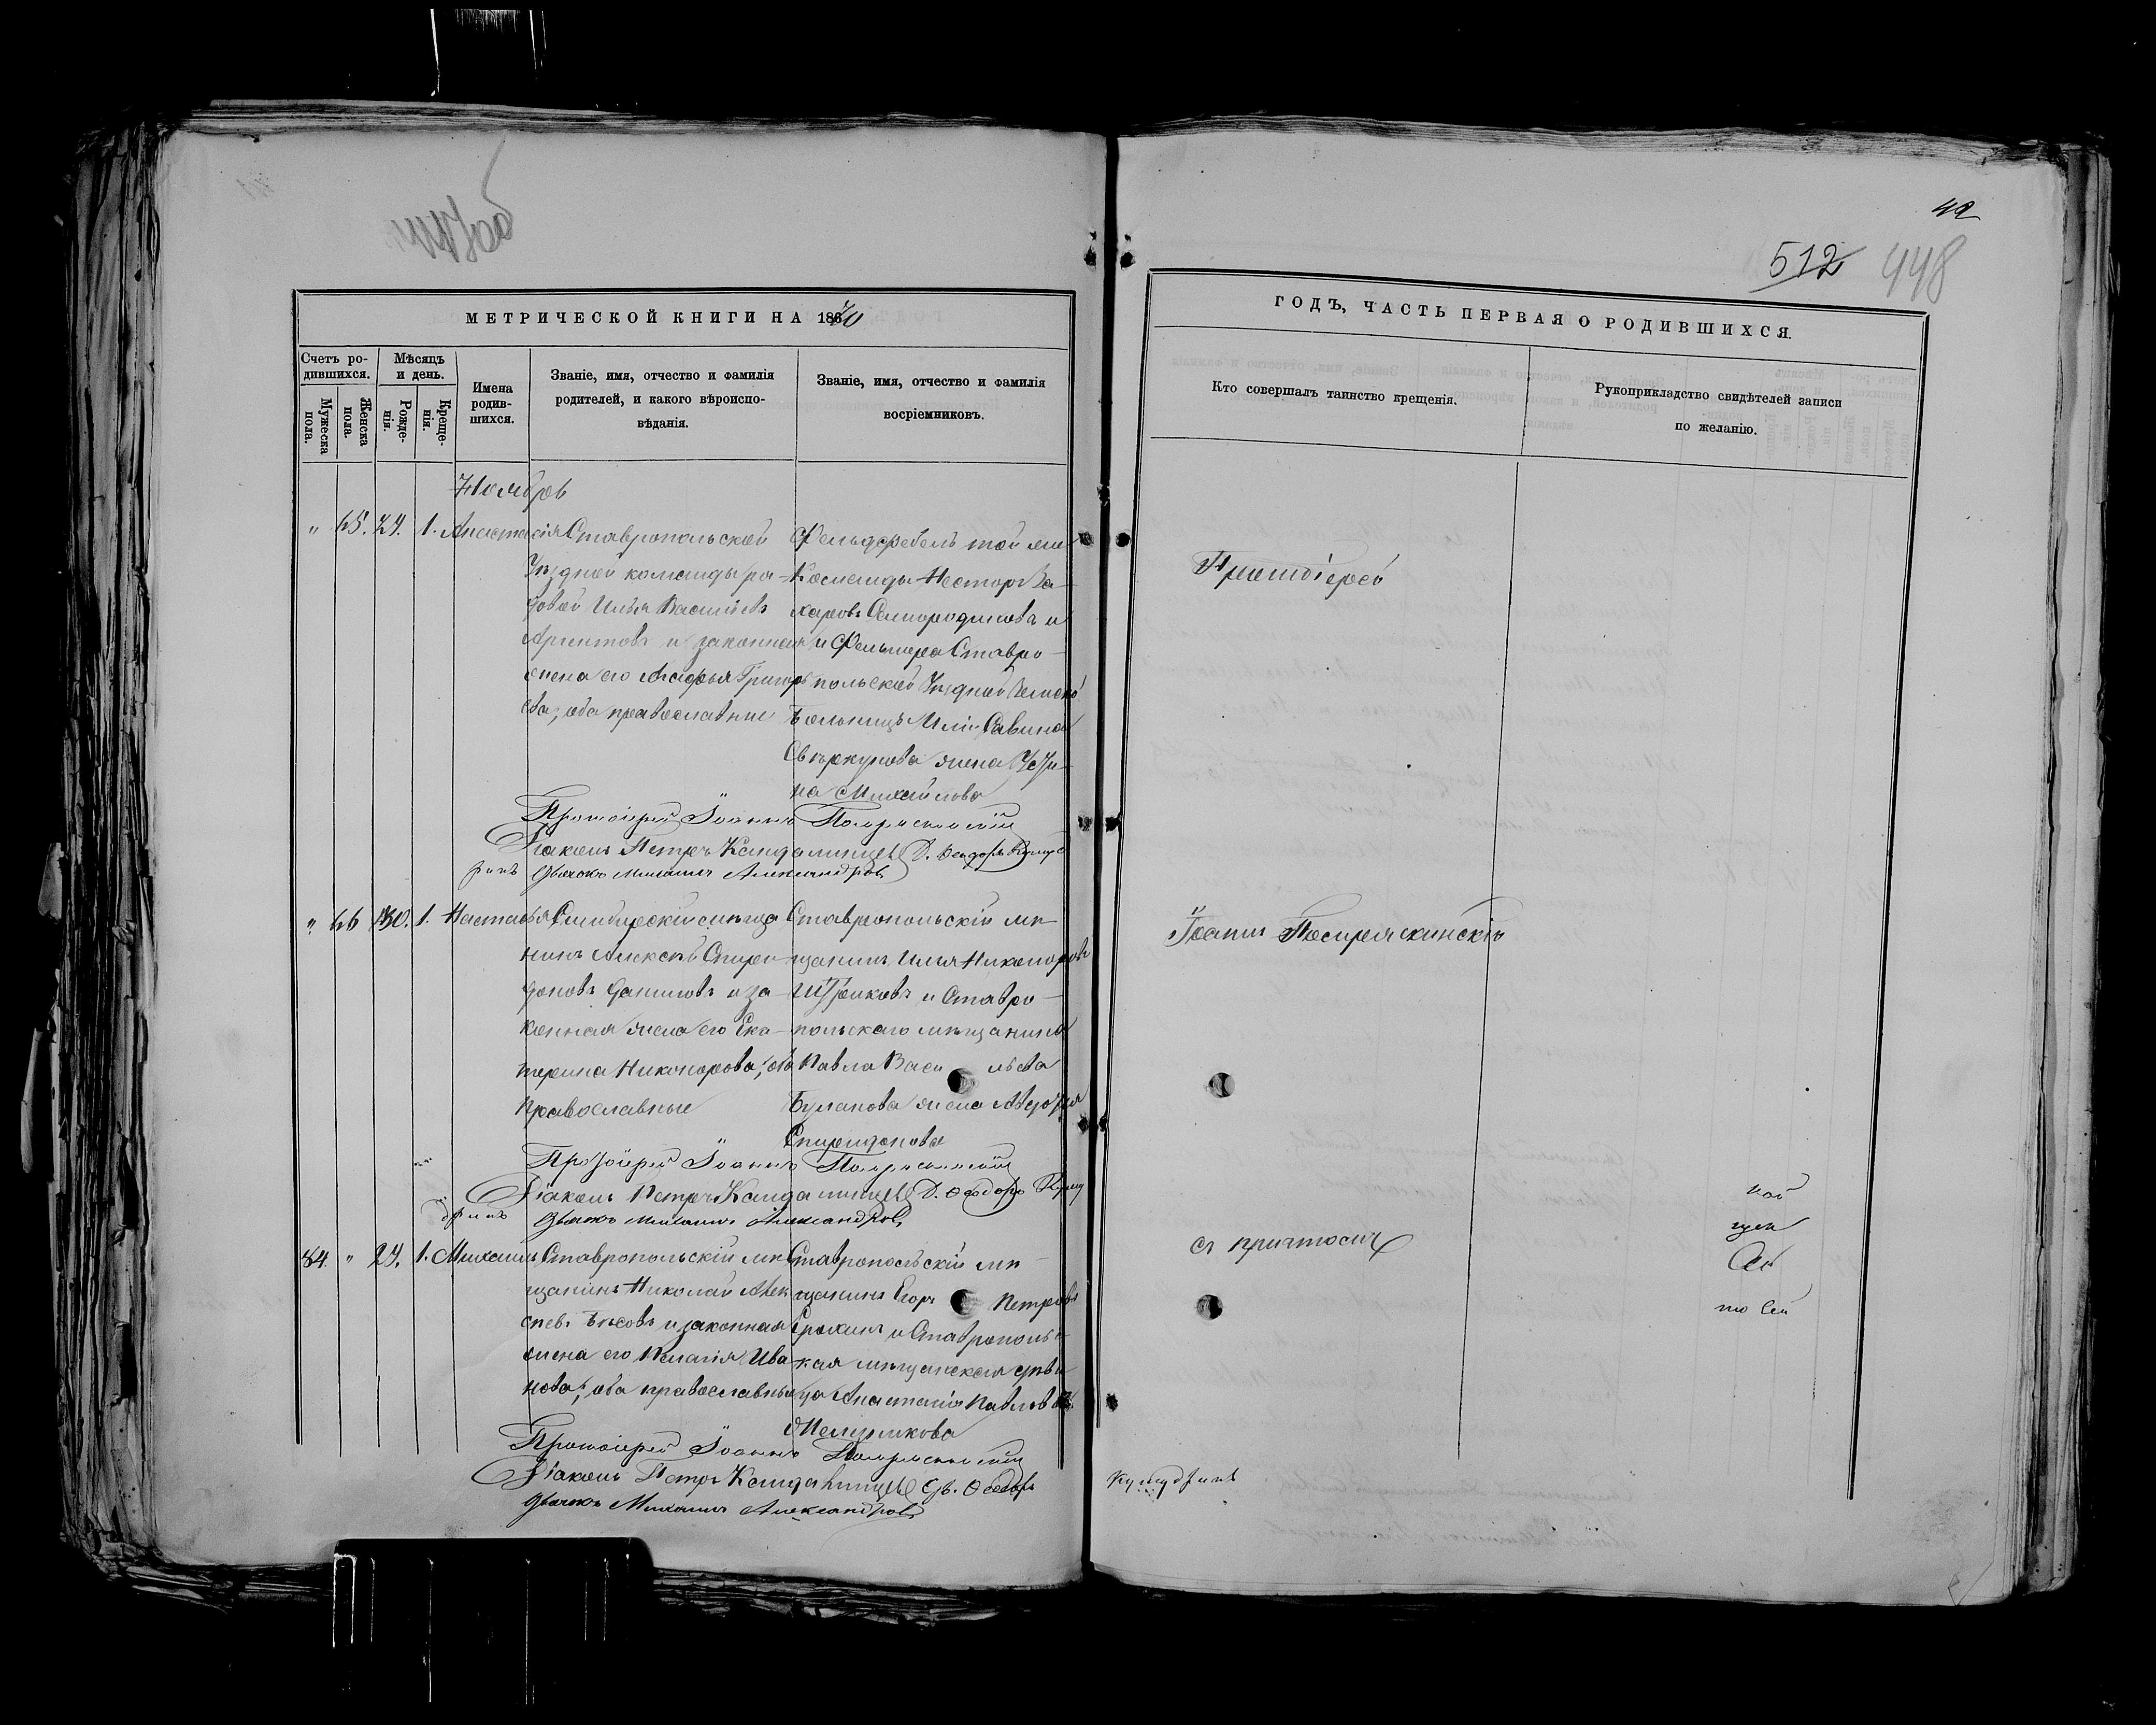 447об
МЕТРИЧЕСКОЙ КНИГИ НА 1870
Счетъ ро-
дившихся.
Мѣсяцъ
и день.
Мужеска
пола.
Женска
пола.
Рожде-
нія.
Креще-
нія.
Имена
родив-
шихся.
Званіе, имя, отчество и фамилія
родителей, и какого вѣроиспо-
вѣданія.
Званіе, имя, отчество и фамилія
восріемниковъ.
Ноябрь
" 65. 29. 1. Анастасія
Ставропольской
Уѣздной команды ря-
довой Илья Васильевъ
и законная
жена его Агафья Григорь
ева, оба православные
Фельдфебель той же
Команды Несторъ За-
харовъ Смородиновъ и
и Фельшера Ставро-
польской Уѣздной Земской
больницы Иліи Савина
жена Усти-
на Михайлова
Протоіерей Іоаннъ
Діаконъ Петръ
Д. Ѳеодоръ
Дьячокъ Михаилъ Александровъ
" 66 30. 1. Настасья
Симбирскій мѣща
нинъ Алексѣй Спири-
доновъ Даниловъ и за-
конная жена его Ека-
терина Никонорова, оба
православные
Ставропольскій мѣ-
щанинъ Илья Никоноровъ
и Ставро-
польскаго мѣщанина
Павла Васильева
Буланова жена Авдотья
Спиридонова
Протоіерей Іоаннъ
Діаконъ Петръ
Д. Ѳеодоръ
Дьячокъ Михаилъ Александровъ
84. " 29. 1. Михаилъ
Ставропольскій мѣ
щанинъ Николай Алек
сѣев. Бѣсовъ и законная
жена его Пелагія Ива
нова, оба православные
Ставропольскій мѣ-
щанинъ Егоръ Петровъ
Ерохинъ и Ставрополь-
ская мѣщанская дѣви
ца Анастасія Павлова
Протоіерей Іоаннъ
Діаконъ Петръ
Дь. Ѳеодоръ
Кундринъ
Дьячокъ Михаилъ Александровъ
42
512 448
ГОДЪ, ЧАСТЬ ПЕРВАЯ О РОДИВШИХСЯ.
Кто совершалъ таинство крещенія.
Рукоприкладство свидѣтелей записи
по желанію.
Протоіерей
Іоаннъ
съ причтомъ